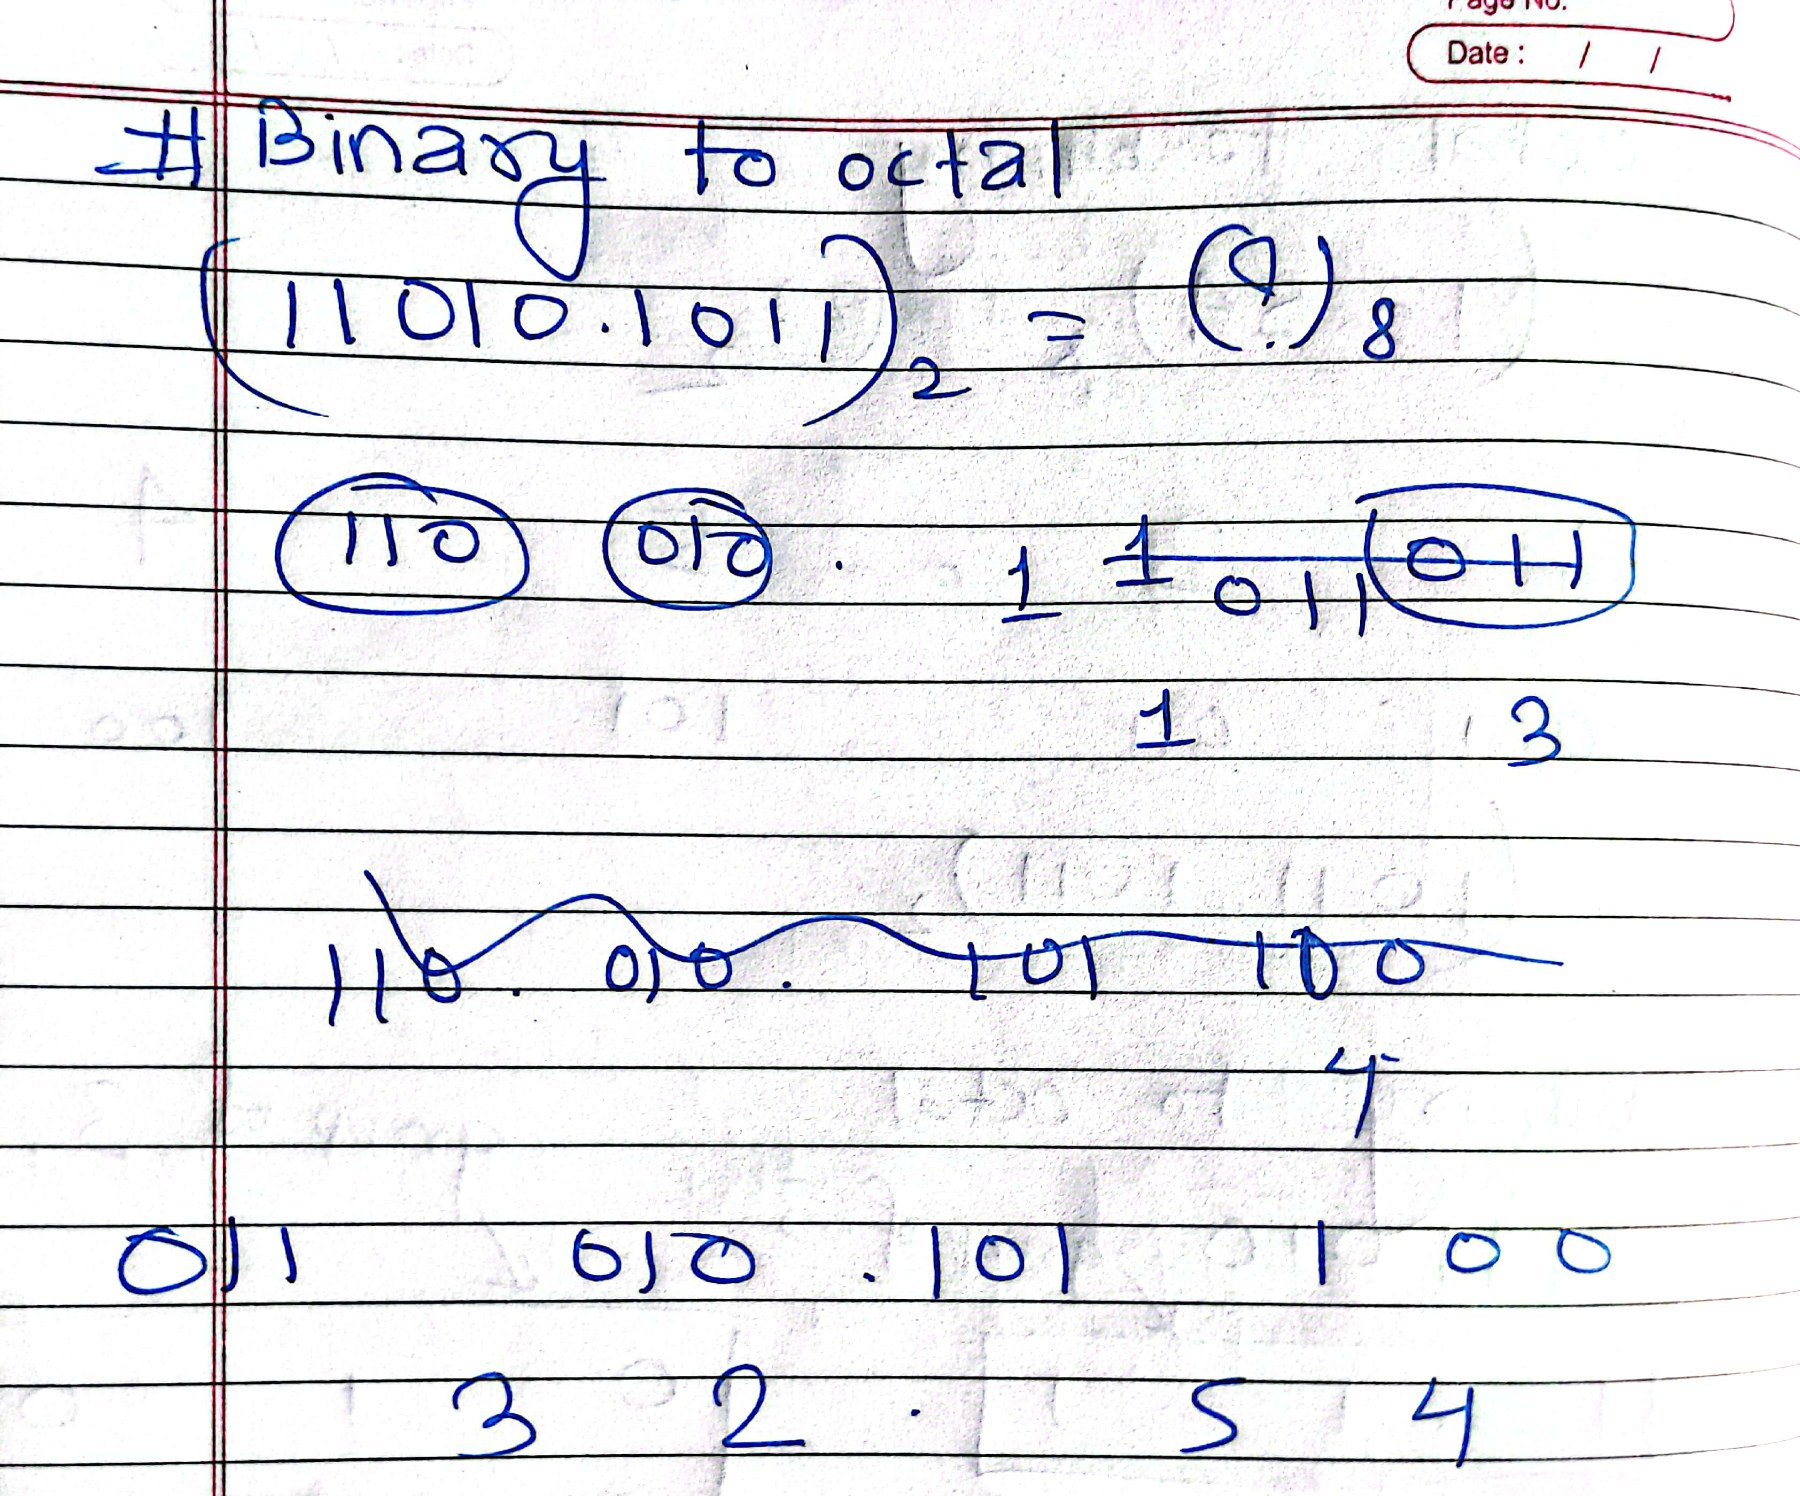 Page No.
Date : / /
# Binary to octal
(11010.1011)2 = (?)8
110 010 . 1 1 011
011
1 3
110 . 010 . 101 100
4
011 010 . 101 100
3 2 . 5 4